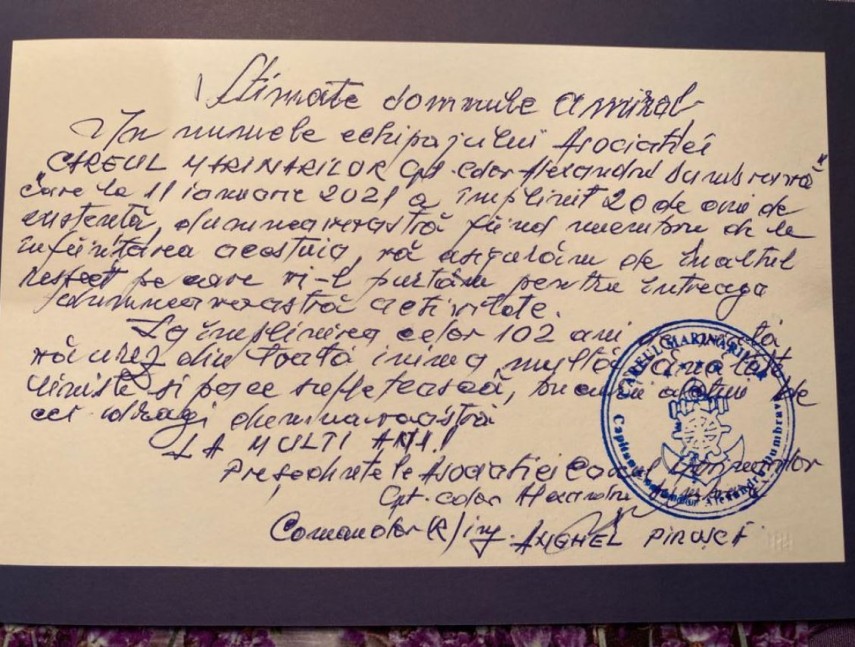 Stimate domnule amiral
În numele echipajului Asociației
CAREUL MARINARILOR Cpt. cdor Alexandru Dumbravă"
care la 11 ianuarie 2021 a împlinit 20 de ani de
existență, dumneavoastră fiind membru de la
înființarea acestuia, vă asigurăm de înaltul
respect pe care vi-l purtăm pentru întreaga
dumneavoastră activitate.
La împlinirea celor 102 ani de
vă urez din toată inima multă sănătate
liniște și pace sufletească, alături de
cei dragi dumneavoastră
LA MULTI ANI!
Președintele Asociației Careul Marinarilor
Cpt. cdor Alexandru
Comandor (R) ing. ANGHEL
CAREUL MARINARILOR
Capitan Comandor Alexandru Dumbravă